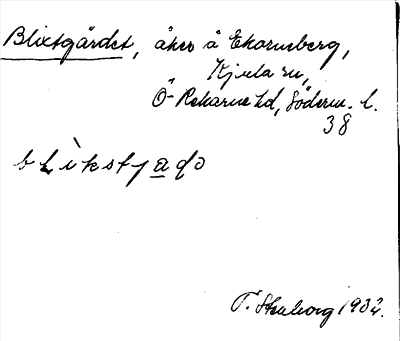 Blixtgärdet, åker å Ekornsberg,
Kjula sn,
Ö-Rekarne hd, Söderm. l.
38
blìkstjado
T. Stenborg 1932.